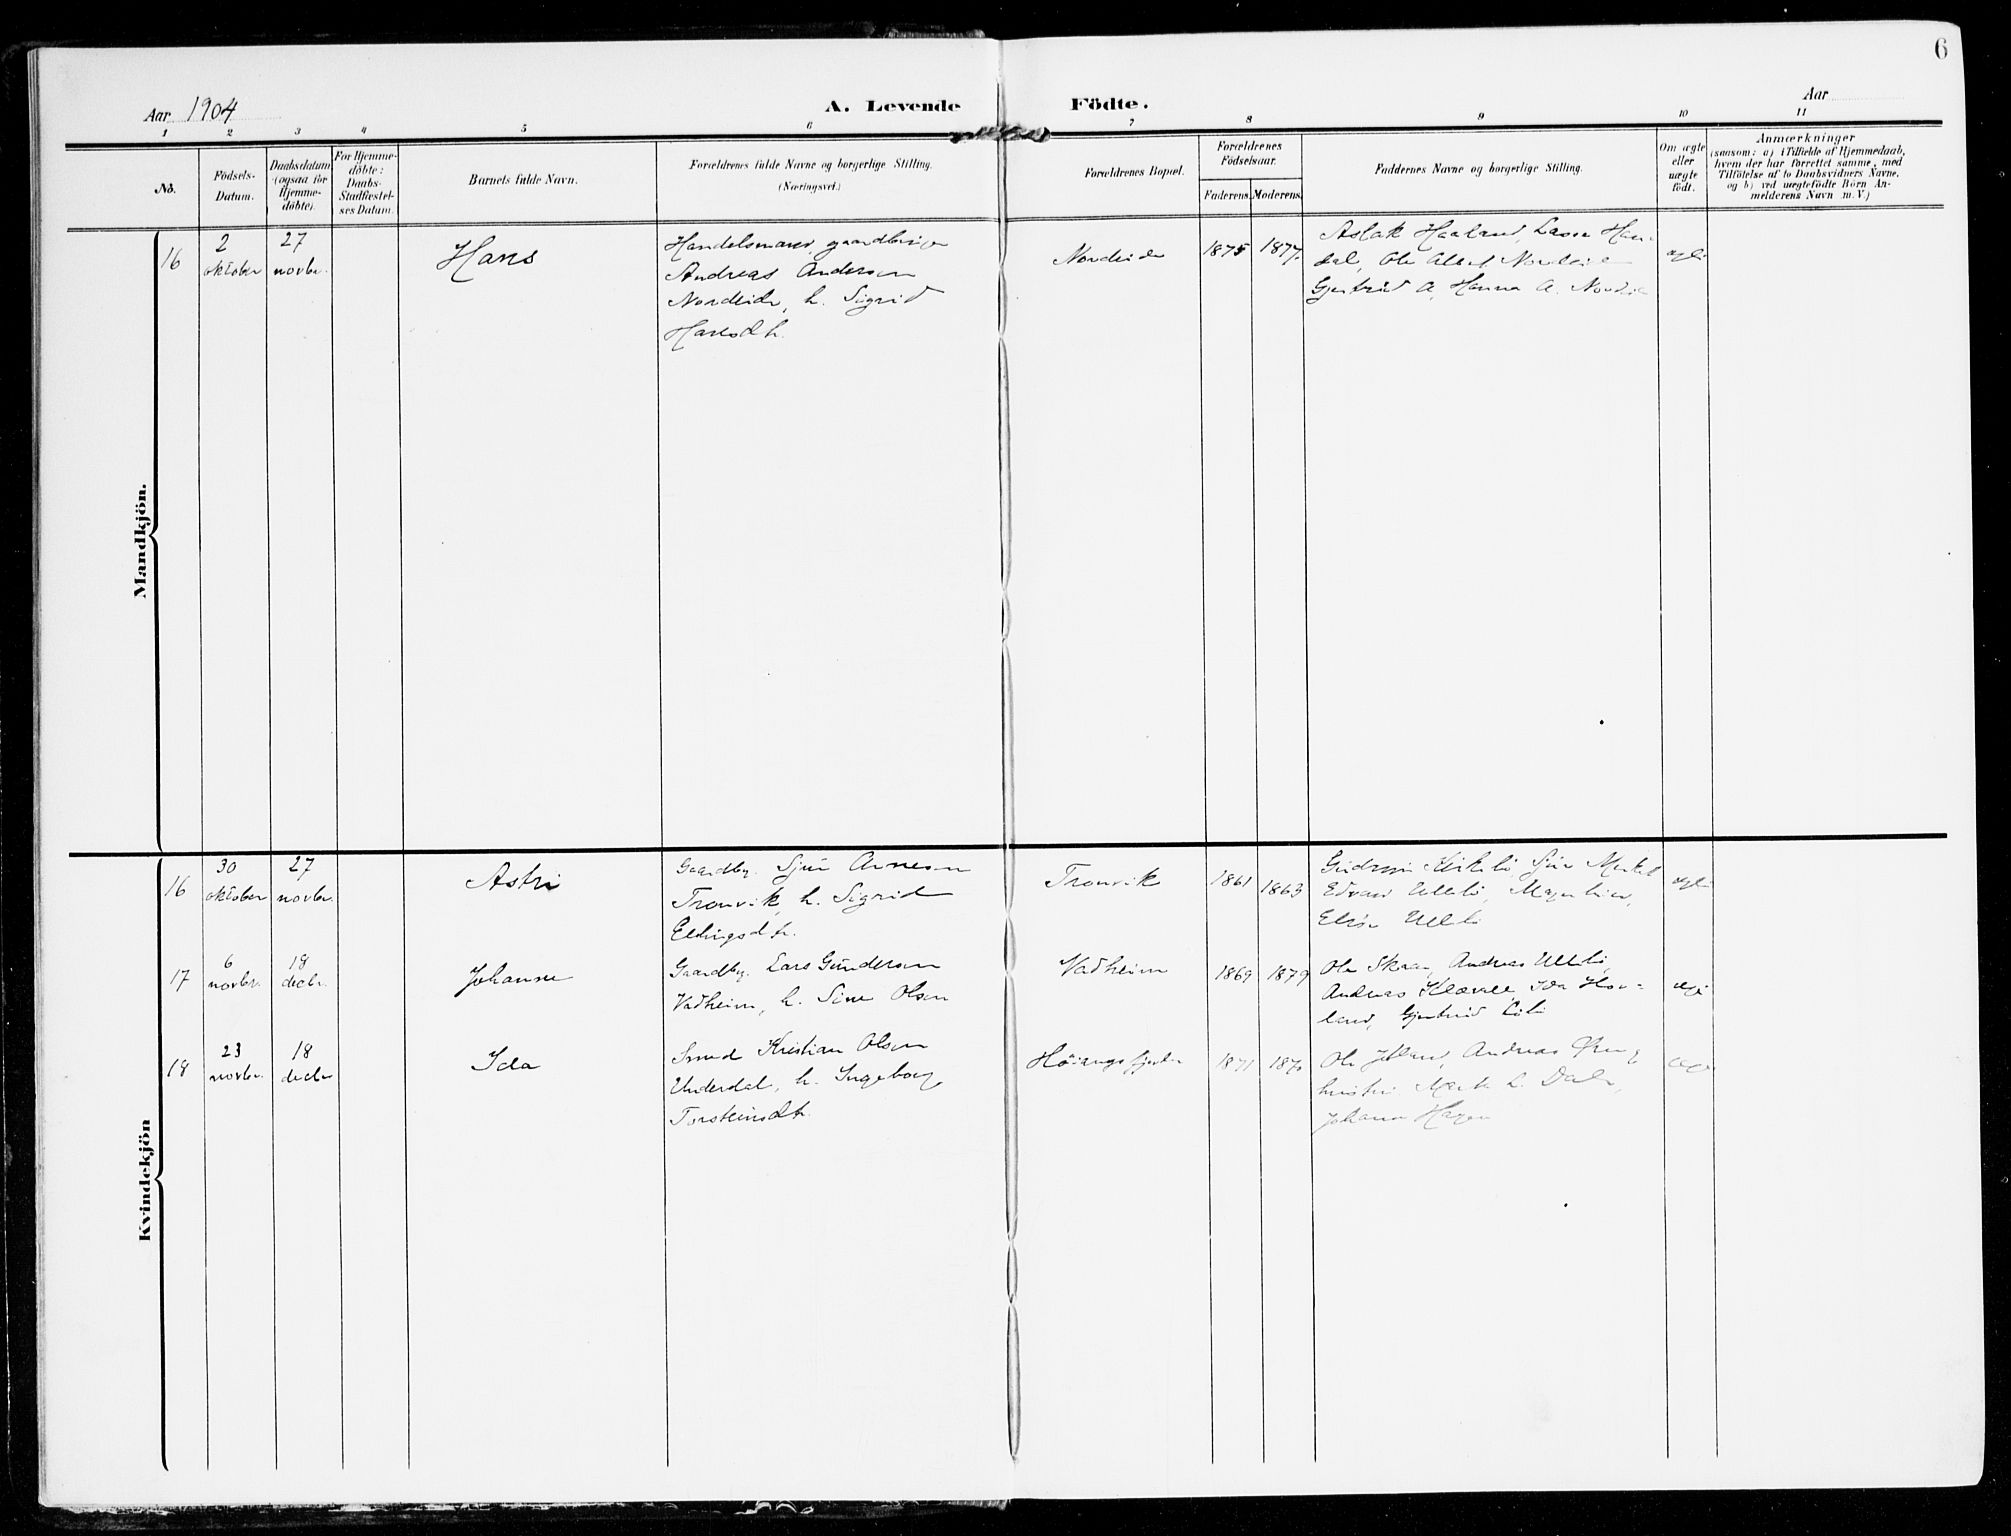 6
Aar 1904
A. Levende Födte.
Aar
1 2 3 4 5 6 7 8 9 10 11
No.
Födsels-Datum.
Daabsdatum (ogsaa for Hjemme-döbte).
For Hjemme-döbte: Daabs-Stadfæstel-ses Datum.
Barnets fulde Navn.
Forældrenes fulde Navne og borgerlige Stilling.
(Næringsvei.)
Forældrenes Bopæl.
Forældrenes Födselsaar.
Faderens. Moderens.
Faddernes Navne og borgerlige Stilling.
Om ægte eller uægte födt.
Anmærkninger
(saasom: a) i Tilfælde af Hjemmedaab,
hvem der har forrettet samme, med
Tilföielse af to Daabsvidners Navne,
og b) ved uægtefödte Börn An-
melderens Navn m. V.)
Mandkjön.
16
2 oktober
27 novbr.
Hans
Handelsmand, gaardbruger
Andreas Andersen
Nordeide, h. Sigrid
Hansdtr.
Nordeide
1875 1877.
Aslak Haaland, Lasse
Ole Nordeide
Gjertrud A, Hanna A. Nordeide
ægte
Kvindekjön
16
30 oktober
27 novbr.
Astri
Gaardbr. Sjur Arnesen
Tronvik, h. Sigrid
Ellingsdtr.
Tronvik
1861 1863
Sjur
Edvard
ægte
17
6 novbr.
18 decbr.
Johanne
Gaardbr. Lars Gundersen
Vadheim, h. Sine Olsen
Vadheim
1869 1879
Ole Skaar, Andreas
Andreas Klævold, Ida Hov-
land, Gjertrud
ægte
18
23 novbr.
18 decbr.
Ida
Smed Kristian Olsen
Underdal, h. Ingeborg
Torsteinsdtr.
Höiangsfjorden
1871
Ole Andreas
Dale,
Johanne